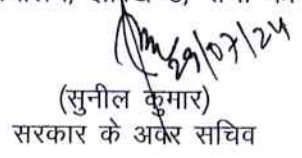 29/07/24
(सुनील कुमार)
सरकार के अवर सचिव